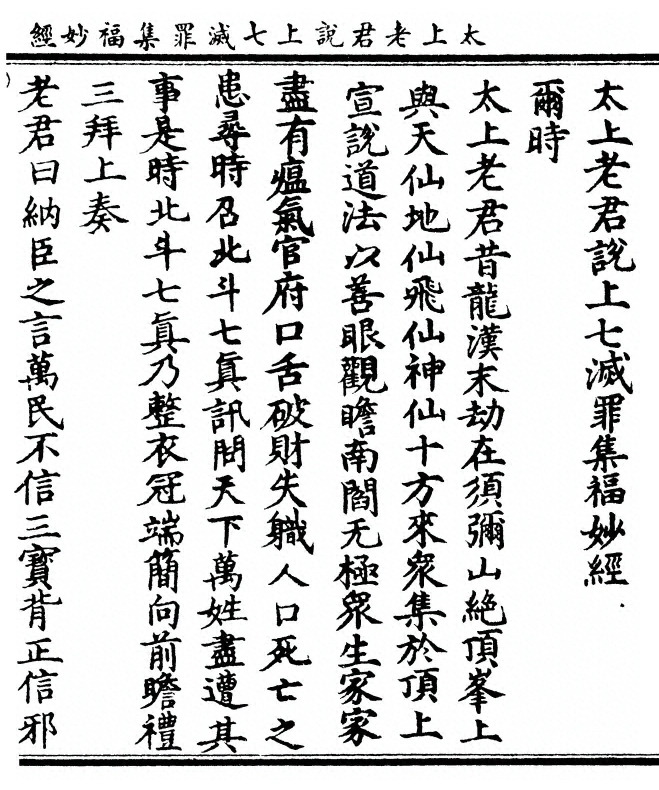 太上老君說上七滅罪集福妙經
太上老君說上七滅罪集福妙經
爾時
太上老君昔龍漢末劫在須彌山絶頂峯上
與天仙地仙飛仙神仙十方來眾集於頂上
宣說道法以善眼觀瞻南閻无極眾生家家
盡有瘟氣官府口舌破財失職人口死亡之
患尋時召北斗七眞訊問天下萬姓盡遭其
事是時北斗七眞乃整衣冠端簡向前瞻禮
三拜上奏
老君曰納臣之言萬民不信三寶背正信邪